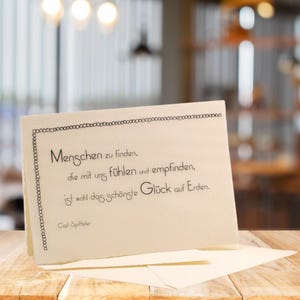 Menschen zu finden,
die mit uns fühlen und empfinden,
ist wohl das schönste Glück auf Erden.
Carl Spitteler